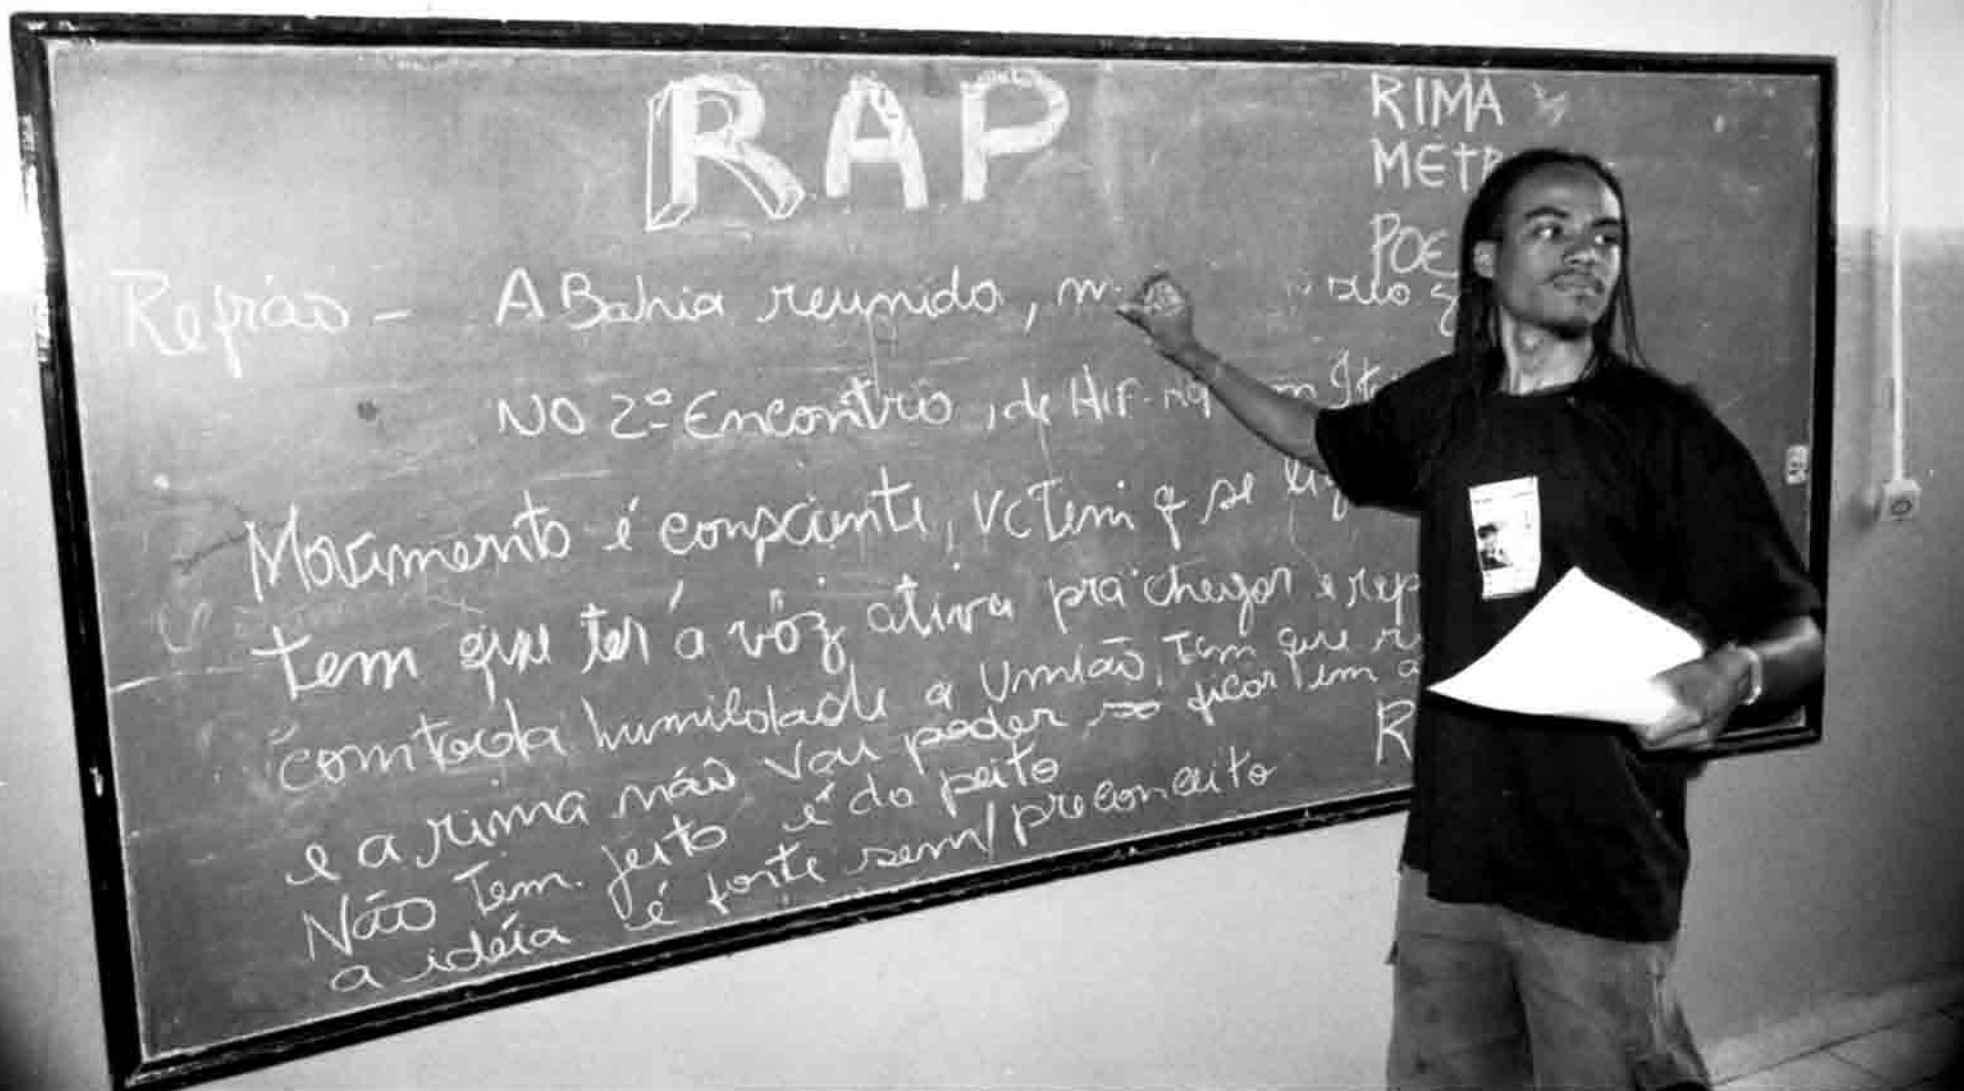 RAP
RIMA
METR
POE
Refrão - A Bahia reunida,
NO 2º Encontro, de HIP-
Movimento é consciente, Vc Tem q se
tem que ter a vóz ativa pra chegar e rep
com toda humildade a União, Tem que
e a rima não vai poder so ficar em
Não Tem jeito é do peito
a idéia é forte sem/preconceito
R